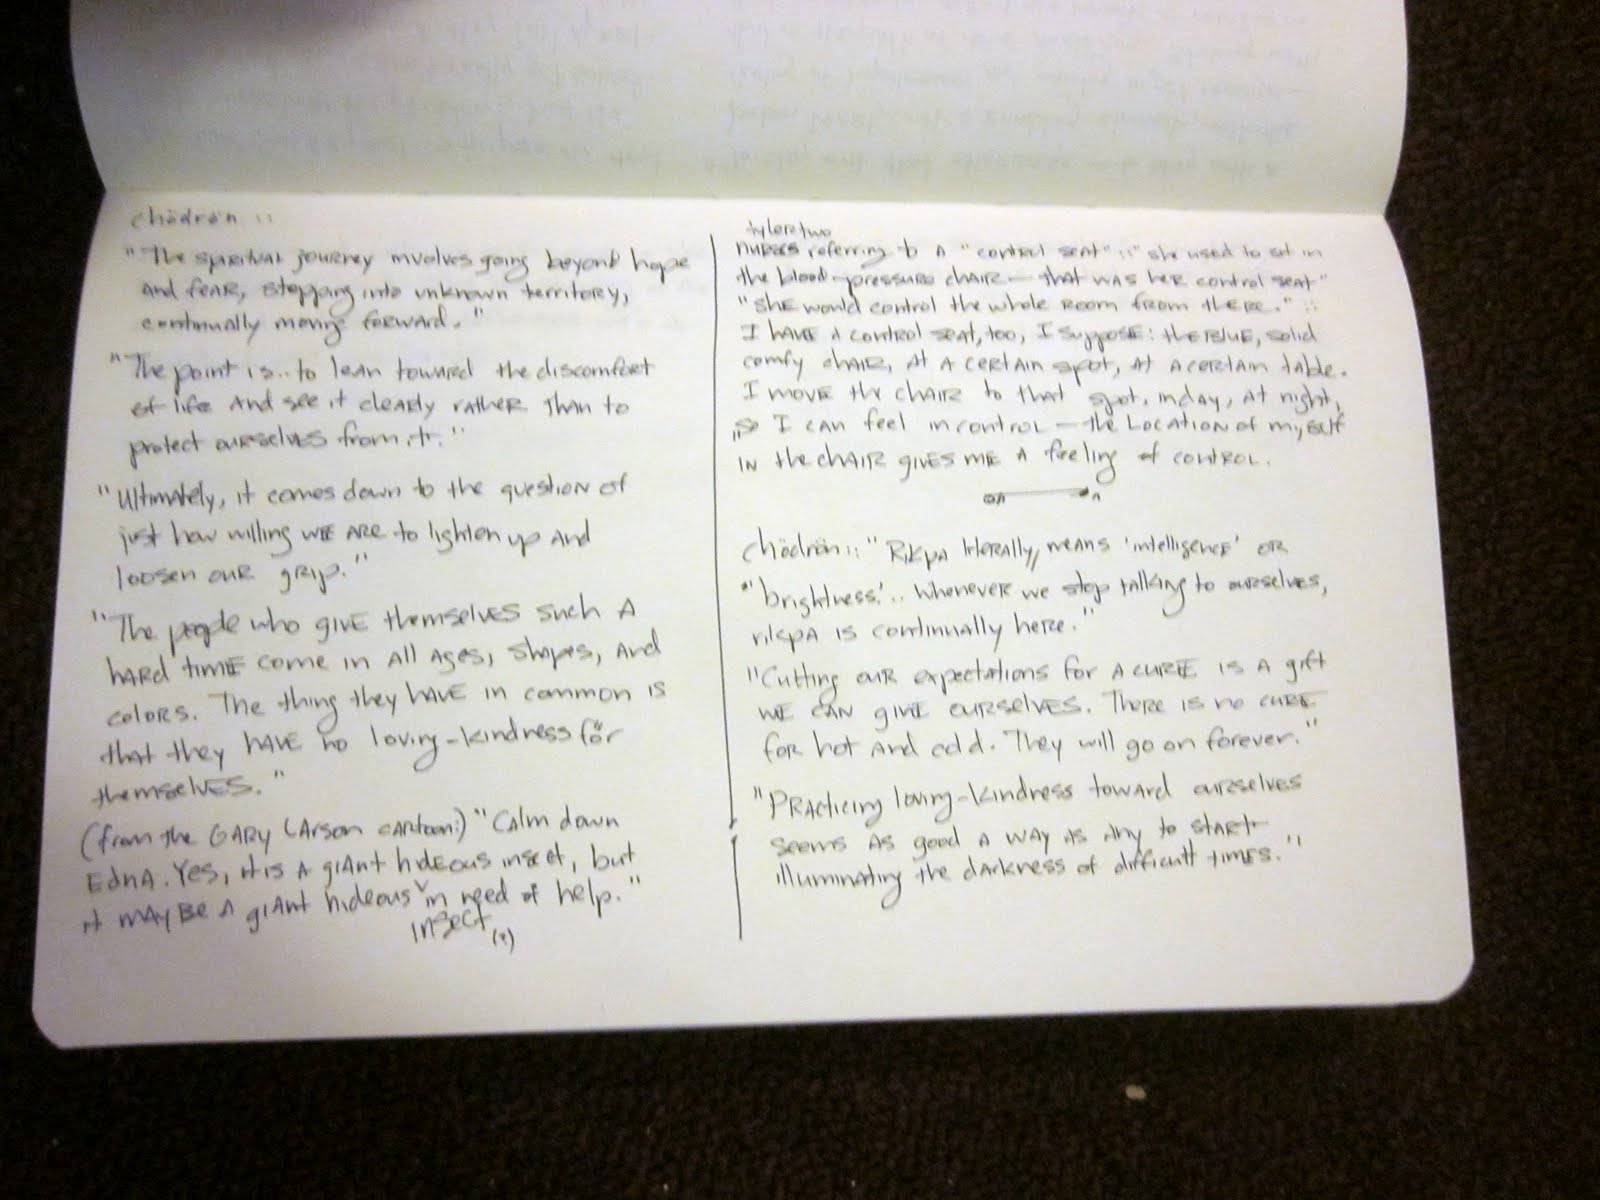 chödrön ::
"The spiritual journey involves going beyond hope
and fear, stepping into unknown territory,
continually moving forward."
"The point is.. to lean toward the discomfort
of life and see it clearly rather than to
protect ourselves from it."
"Ultimately, it comes down to the question of
just how willing we are to lighten up and
loosen our grip."
"The people who give themselves such a
hard time come in all ages, shapes, and
colors. The thing they have in common is
that they have no loving-kindness for
themselves."
(from the Gary Larson cartoon:) "Calm down
Edna. Yes, it is a giant hideous insect, but
it may be a giant hideous ˅ in need of help."
insect (?)
tyler two
nurses referring to a "control seat" :: "she used to sit in
the blood-pressure chair — that was her control seat"
"she would control the whole room from there." ::
I have a control seat, too, I suppose: the blue, solid
comfy chair, at a certain spot, at a certain table.
I move the chair to that spot, in day, at night,
so I can feel in control — the location of myself
in the chair gives me a feeling of control.
chödrön :: "Rikpa literally means 'intelligence' or
'brightness.'.. Whenever we stop talking to ourselves,
rikpa is continually here."
"Cutting our expectations for a cure is a gift
we can give ourselves. There is no cure
for hot and cold. They will go on forever."
"Practicing loving-kindness toward ourselves
seems as good a way as any to start
illuminating the darkness of difficult times."